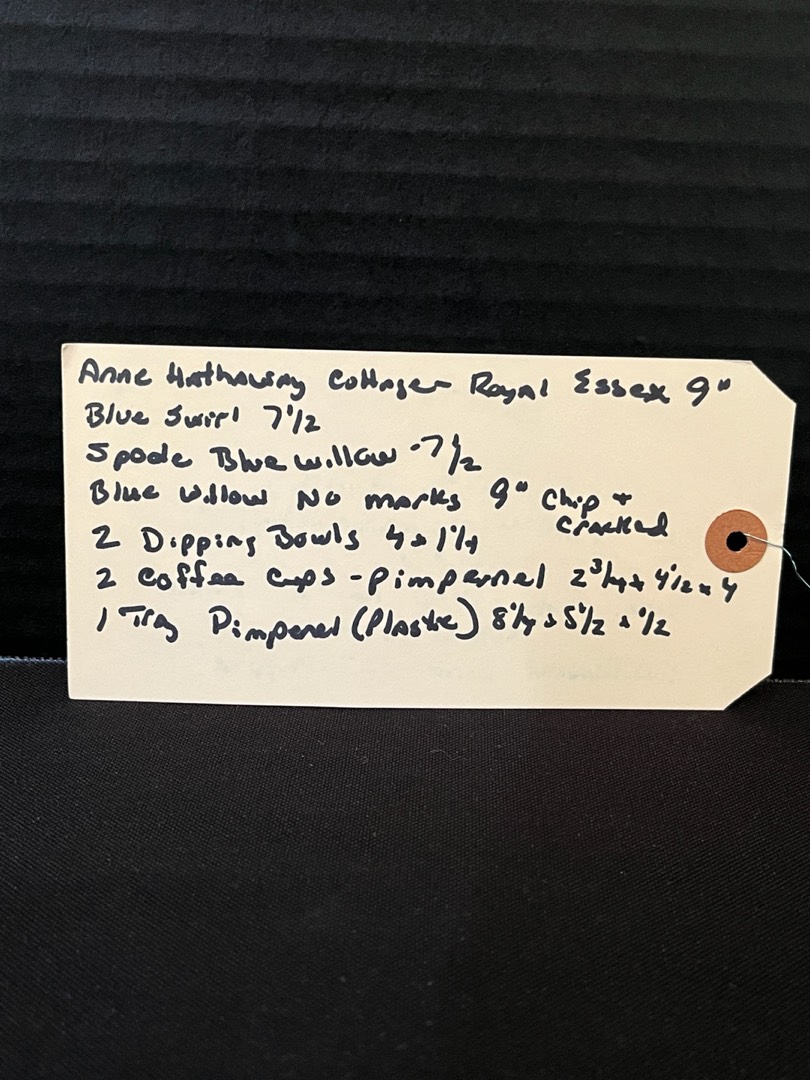 Anne Hathaway Cottage - Royal Essex 9"
Blue Swirl 7 1/2
Spode Blue Willow - 7 1/2
Blue Willow No marks 9" Chip + Cracked
2 Dipping Bowls 4 x 1 1/4
2 Coffee Cups - Pimpernel 2 3/4 x 4 1/2 x 4
1 Tray Pimpernel (Plastic) 8 1/4 x 5 1/2 x 1/2